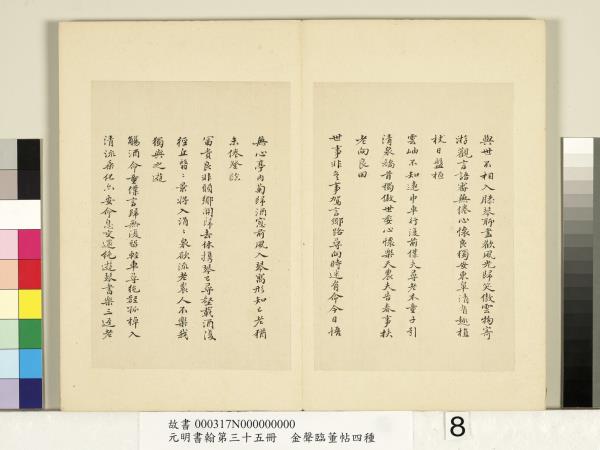 與世不相入膝琴聊盡歡風光歸笑傲雲物寄
游觀言語審無倦心懷良獨安東皋清有趣植
杖日盤桓
雲岫不知遠巾車行復前僕夫尋老木童子引
清泉矯首獨傲世委心懷樂天農夫告春事扶
老向良田
世事非吾事駕言鄉路尋向時迷有命今日悟
無心亭內菊歸酒窗前風入琴寓形知已老猶
未倦登臨
富貴良非願鄉關歸去休携琴已尋壑載酒復
經丘翳翳景將入涓涓泉欲流老農人不樂我
獨與之遊
觴酒命童僕言歸無復留輕車尋絕壑孤棹入
清流乘化欲安命息交還絕遊琴書樂三逕老
故書 000317N000000000
元明書翰第三十五冊 金聲臨董帖四種
8